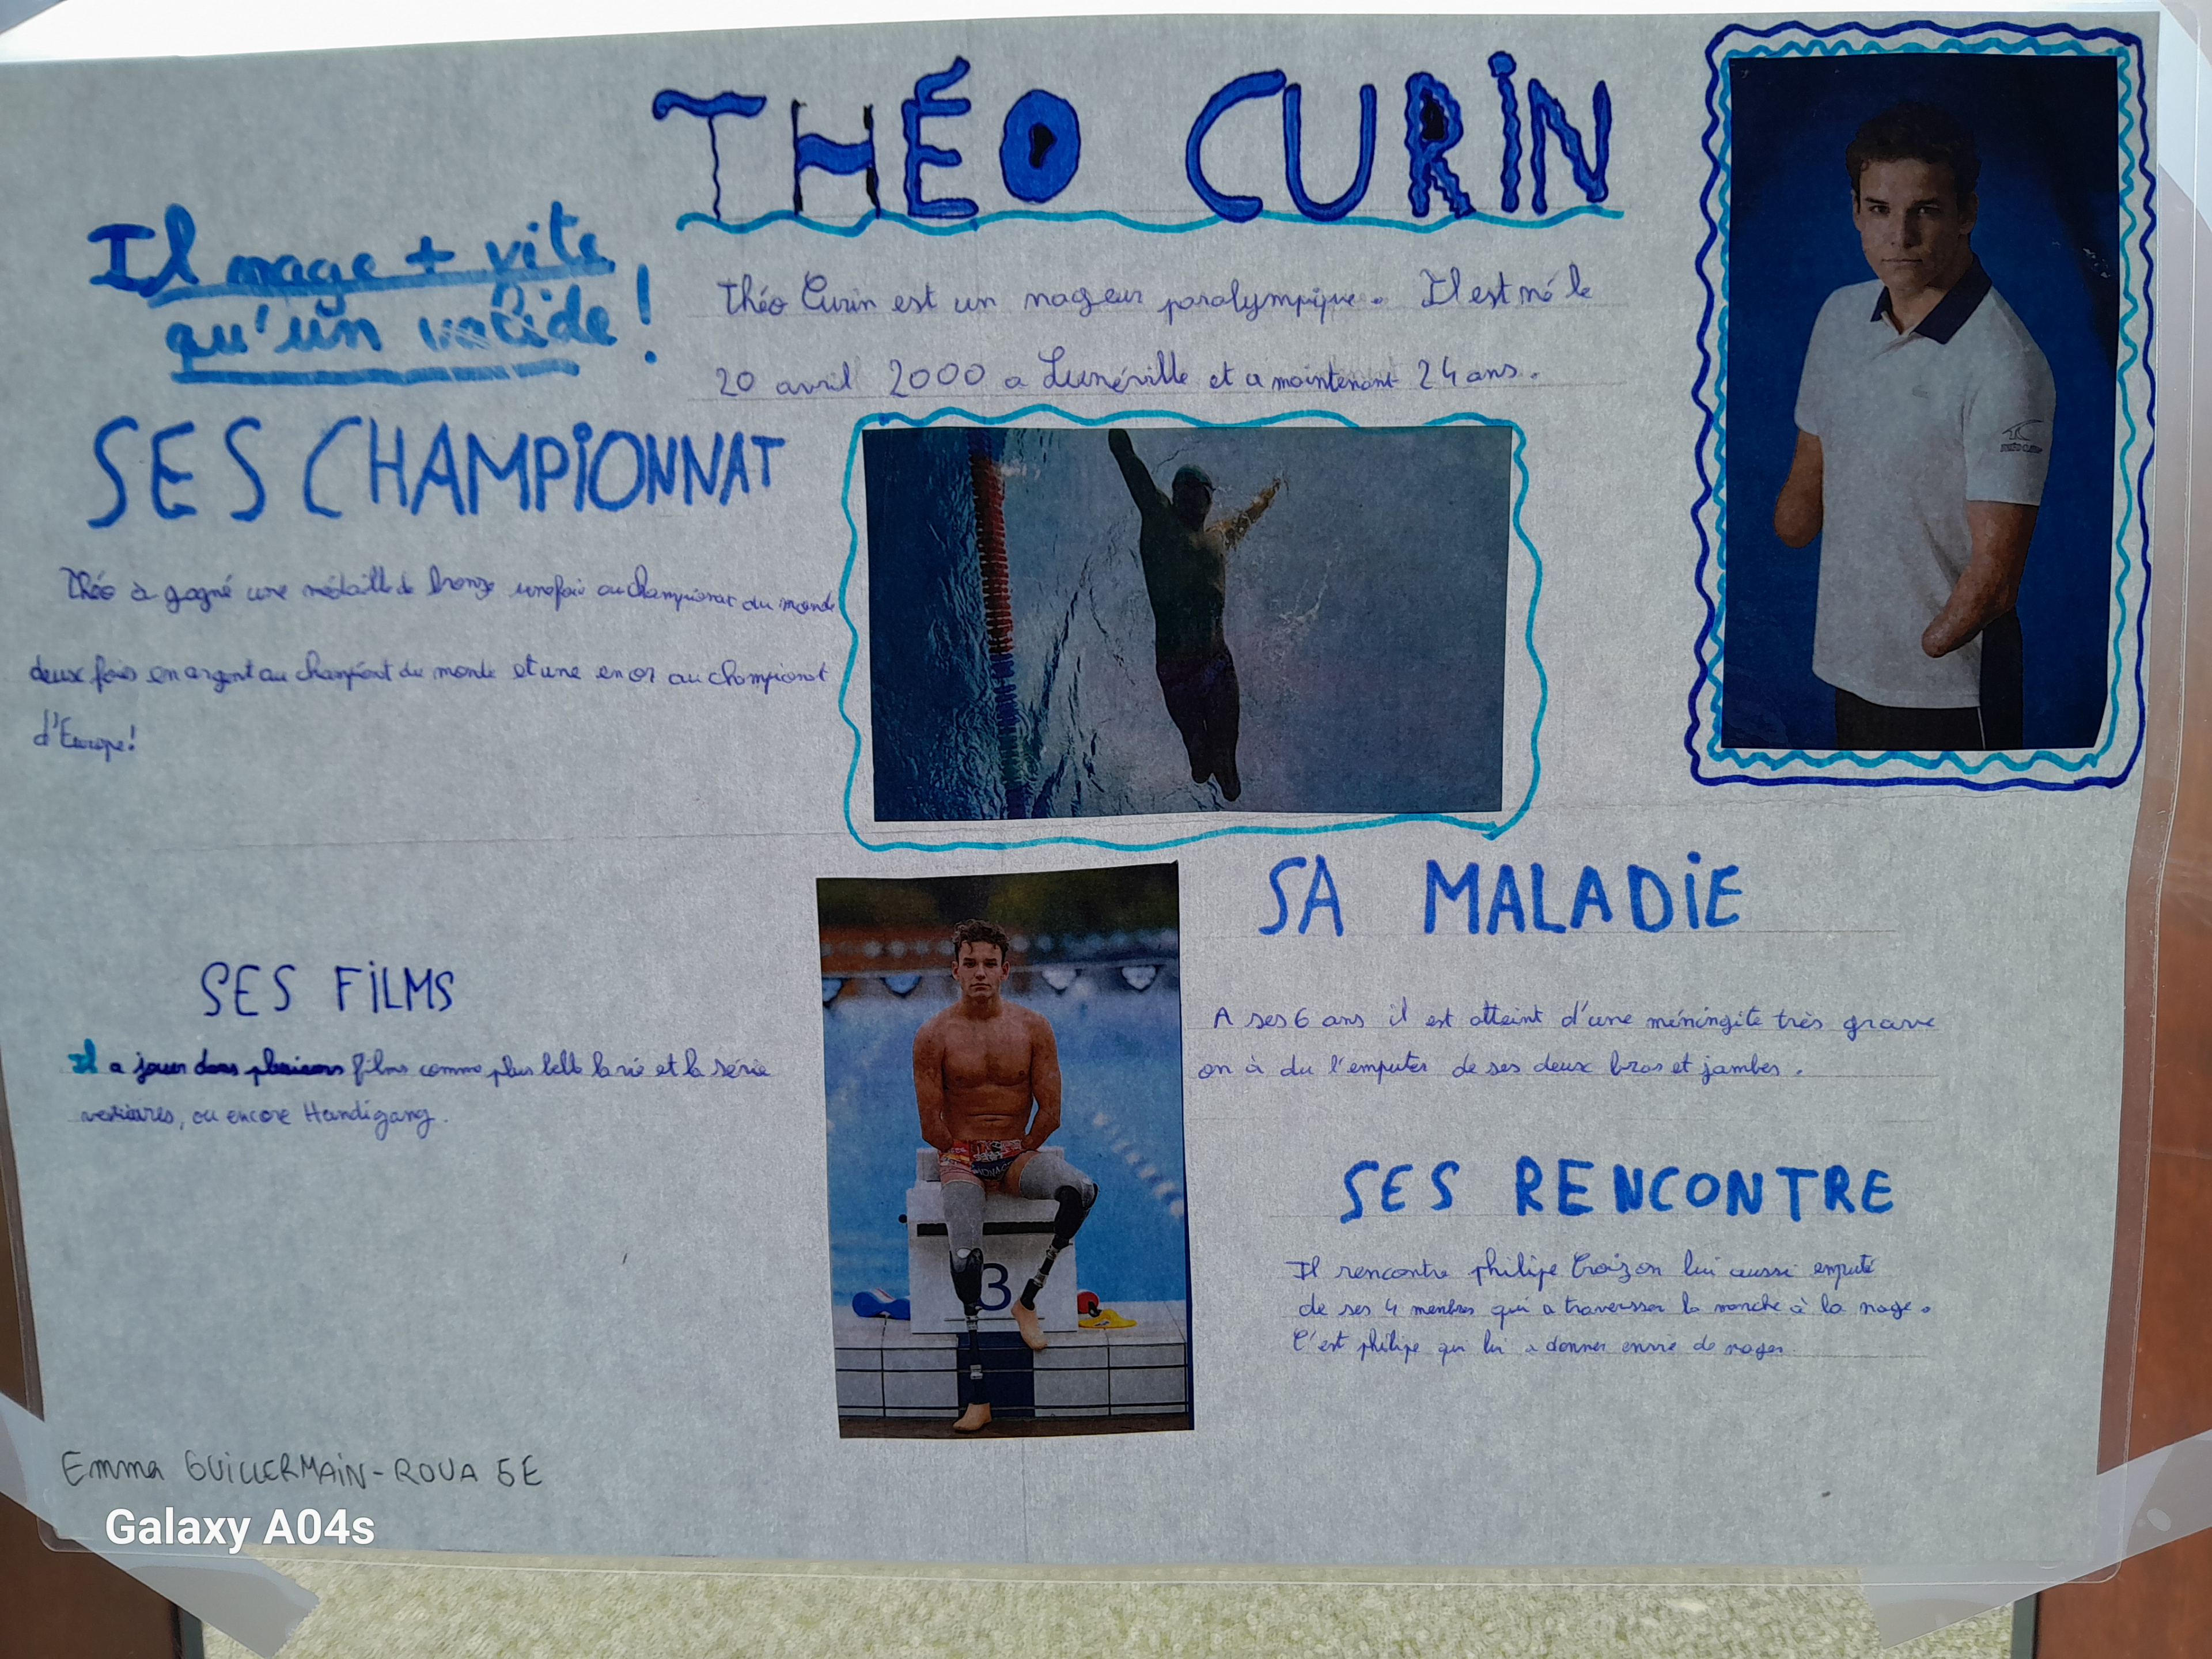 THÉO CURIN
Il nage + vite
qu'un valide !
Théo Curin est un nageur paralympique. Il est né le
20 avril 2000 a Lunéville et a maintenant 24 ans.
SES CHAMPIONNAT
Théo à gagné une médaille de bronze une fois au championat du monde
deux fois en argent au champiónt du monde et une en or au championat
d'Europe!
SES FILMS
Il a jouer dans plusieurs films comme plus belle la vie et la série
vestiaires, ou encore Handigang.
3
SA MALADIE
A ses 6 ans il est atteint d'une méningite très grave
on à du l'emputer de ses deux bras et jambes.
SES RENCONTRE
Il rencontre philipe Croizon lui aussi emputé
de ses 4 membres qui a traversser la manche à la nage.
C'est philipe qui lui a donner envie de nager.
Emma GUILLERMAIN-ROUA 5E
Galaxy A04s